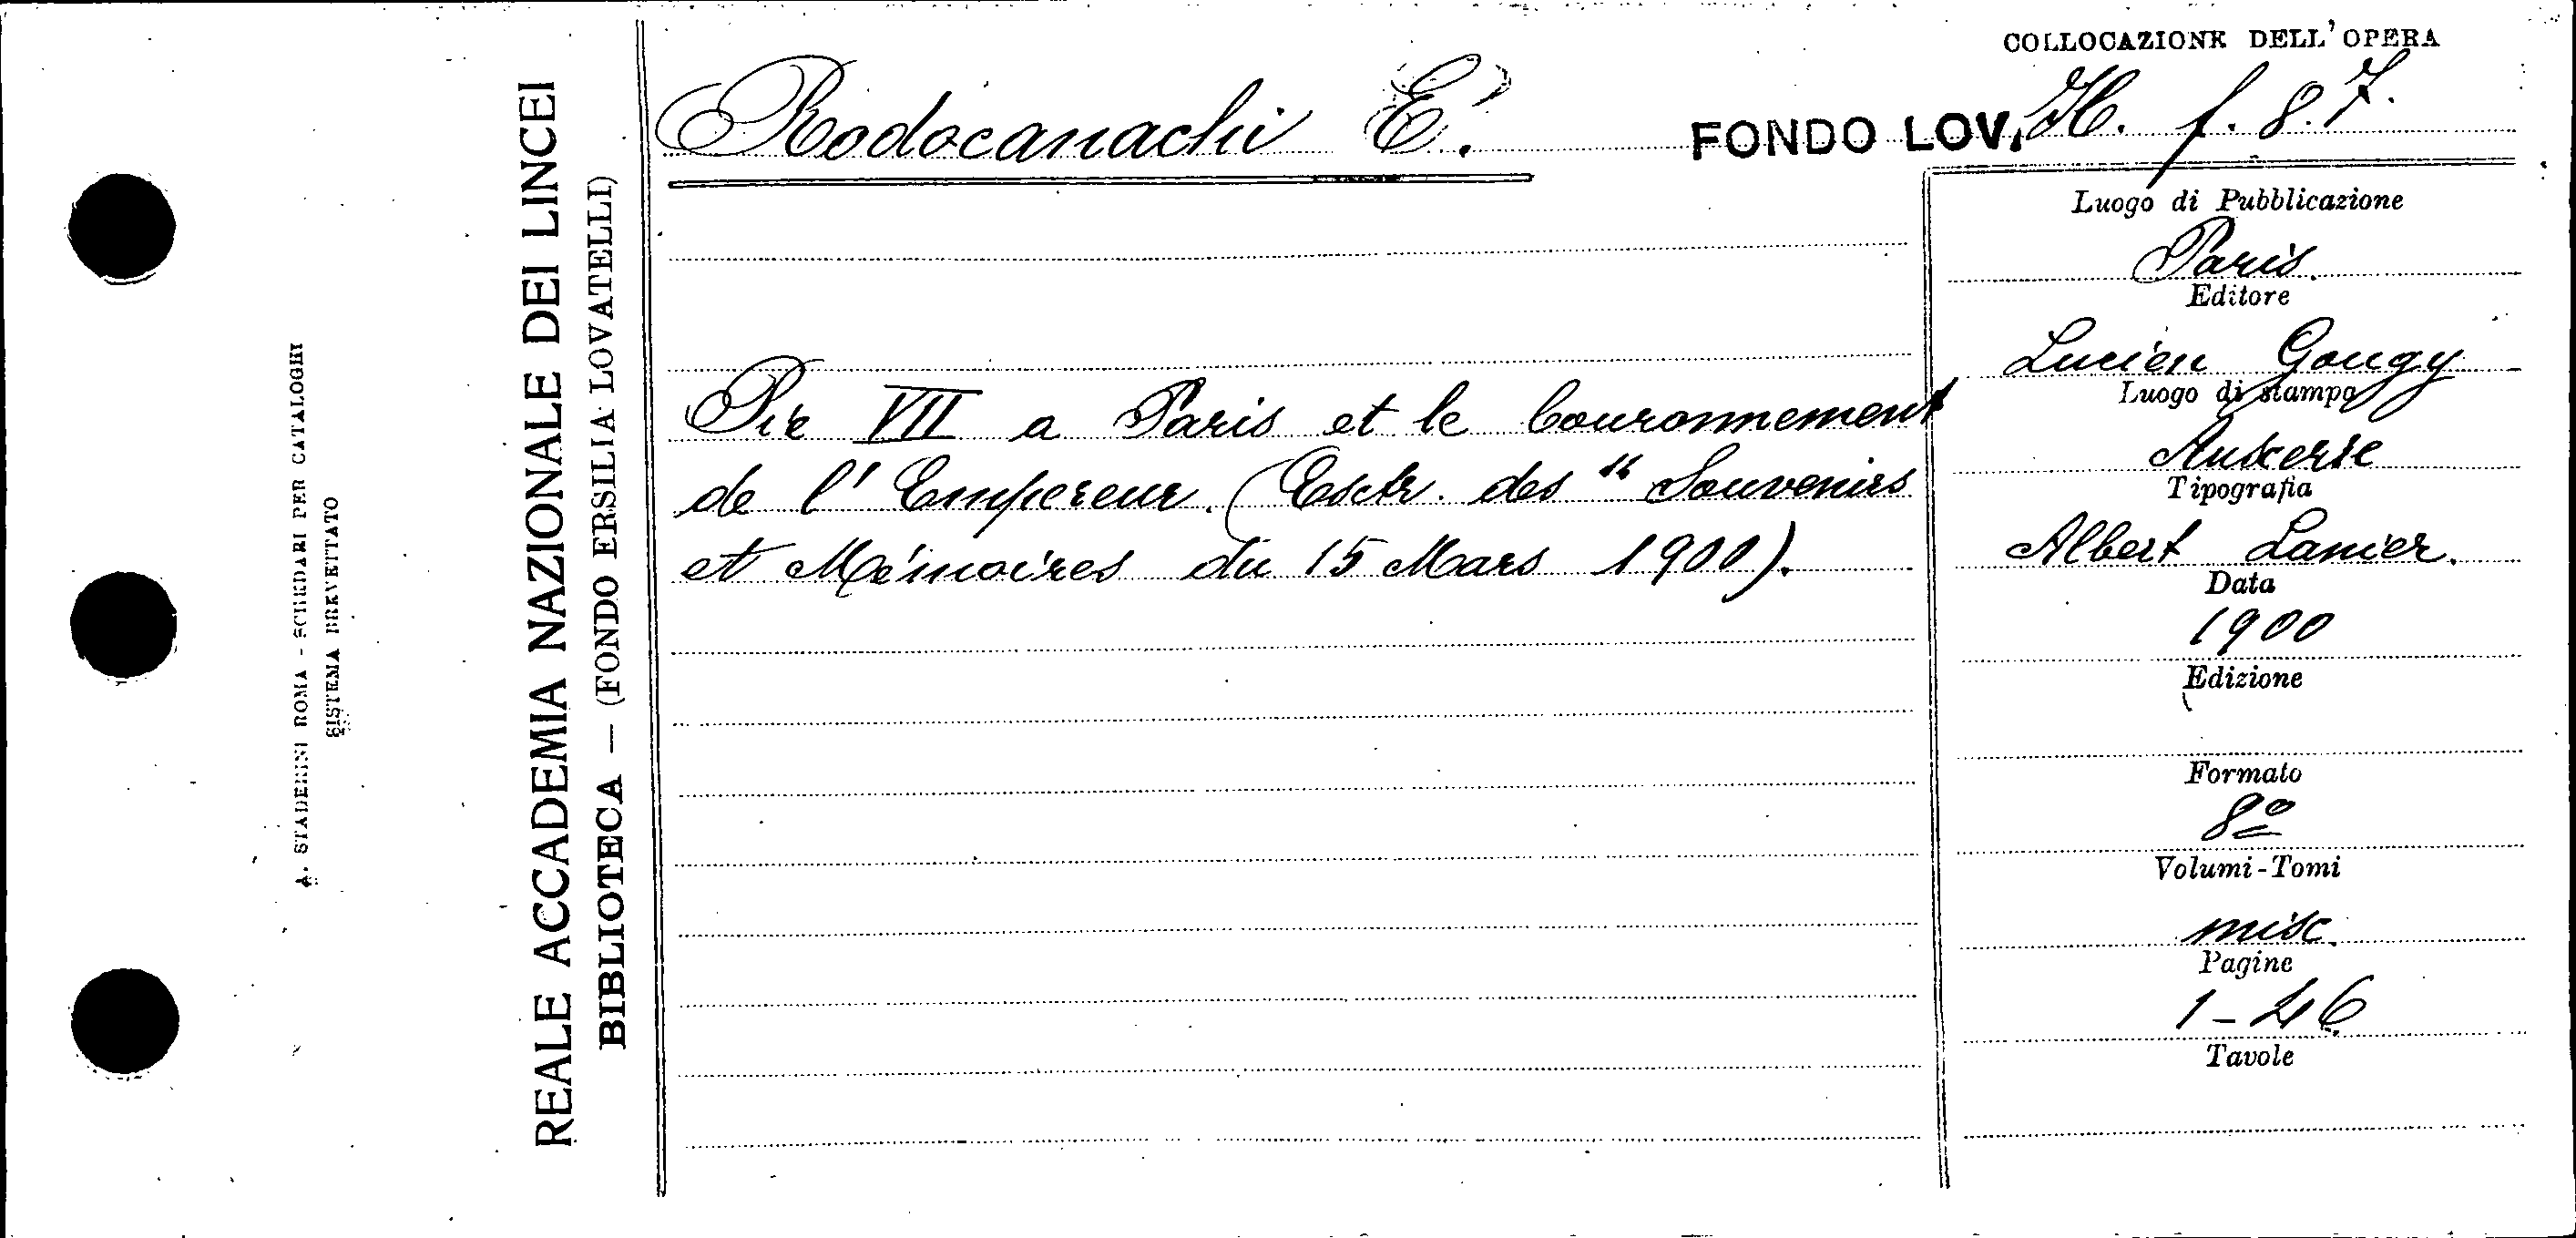 COLLOCAZIONE DELL'OPERA
Rodocanachi E.
FONDO LOV. H. f. 8. 7.
Pie VII a Paris et le Couronnement
de l'Empereur. (Esctr. des "Souvenirs
et Mémoires du 15 Mars 1900).
Luogo di Pubblicazione
Paris.
Editore
Lucien Gougy
Luogo di stampa
Auxerre
Tipografia
Albert Lanier.
Data
1900
Edizione
Formato
8º
Volumi-Tomi
misc.
Pagine
1-46
Tavole
REALE ACCADEMIA NAZIONALE DEI LINCEI
BIBLIOTECA — (FONDO ERSILIA LOVATELLI)
A. STADERINI ROMA - SCHEDARI PER CATALOGHI
SISTEMA BREVETTATO